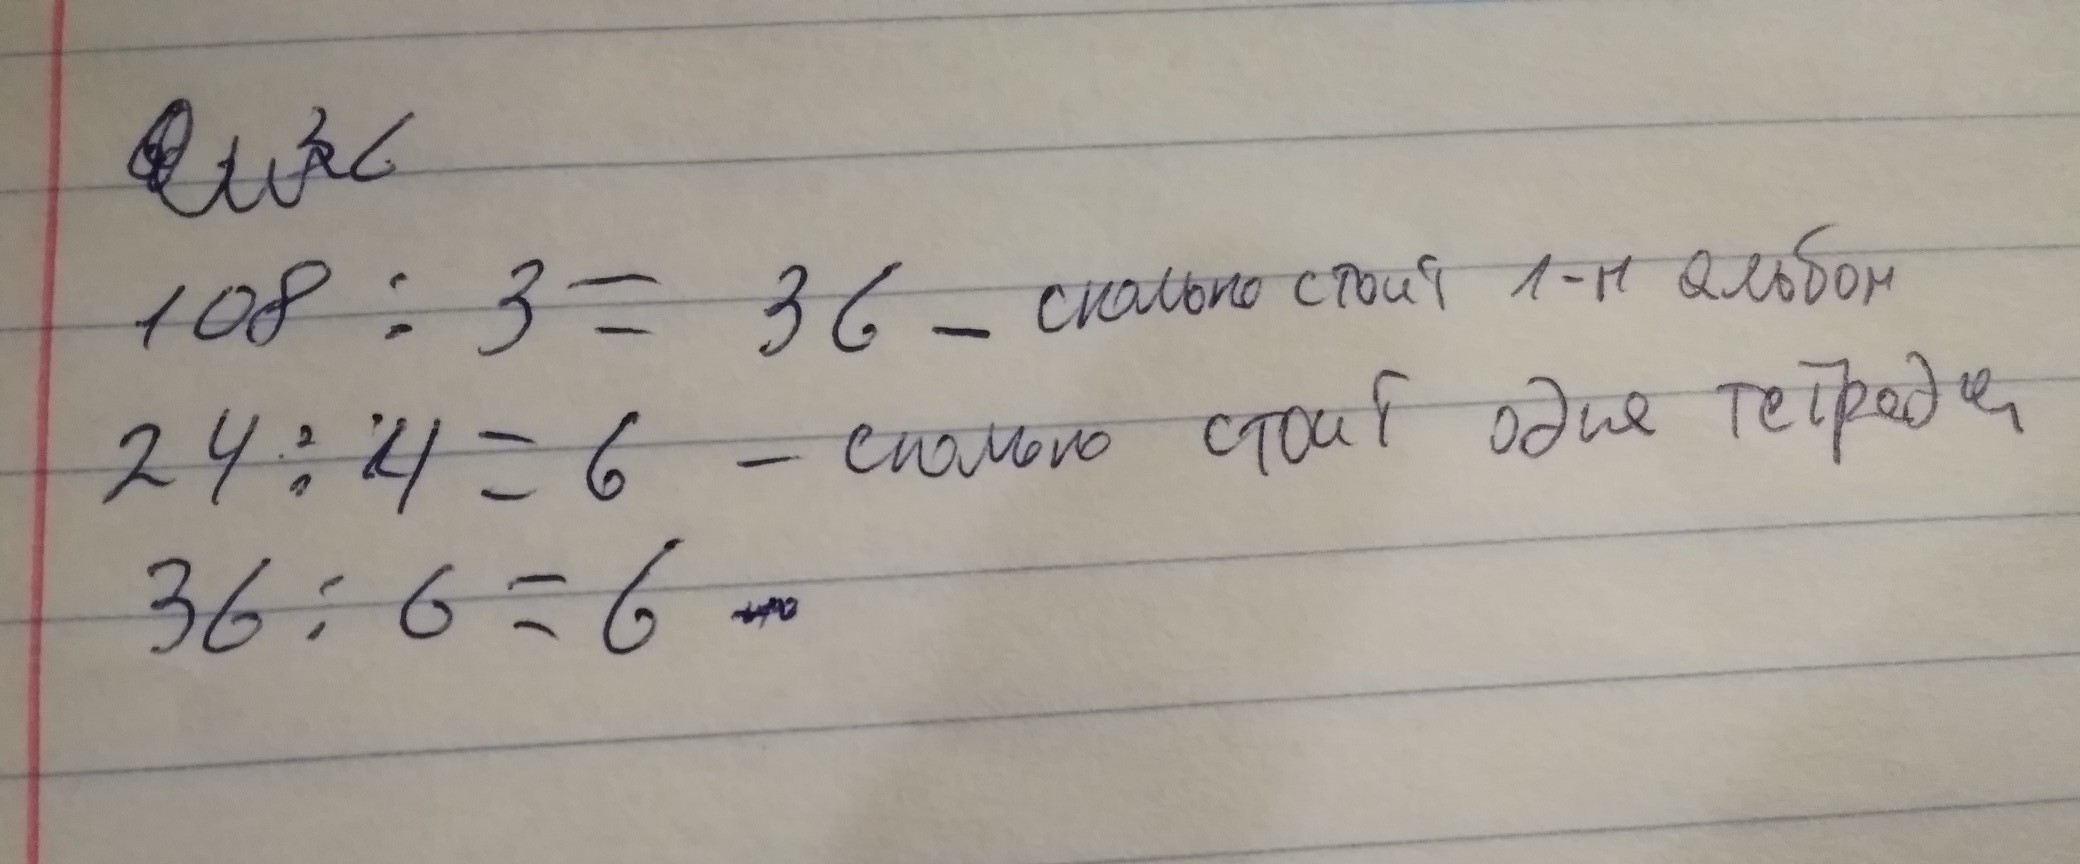 108 ÷ 3 = 36 - сколько стоит 1-н альбом
24 ÷ 4 = 6 - сколько стоит одна тетради
36 : 6 = 6 -